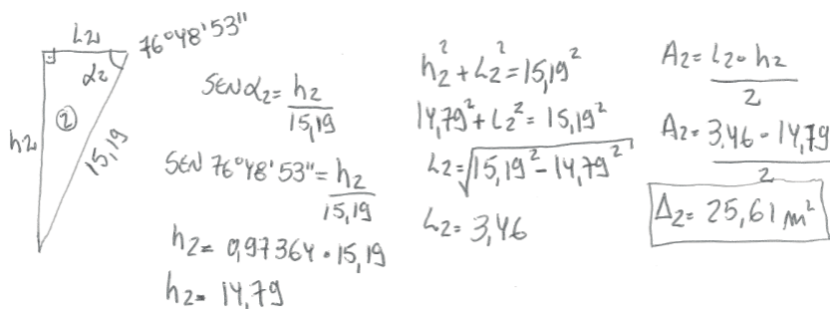 L2
76°48'53"
α2
②
h2
15,19
SEN α2 = h2
15,19
SEN 76°48'53" = h2
15,19
h2 = 0,97364 • 15,19
h2 = 14,79
h2² + L2² = 15,19²
14,79² + L2² = 15,19²
L2 = √15,19² - 14,79²
L2 = 3,46
A2 = L2 • h2
2
A2 = 3,46 • 14,79
2
Δ2 = 25,61 m²